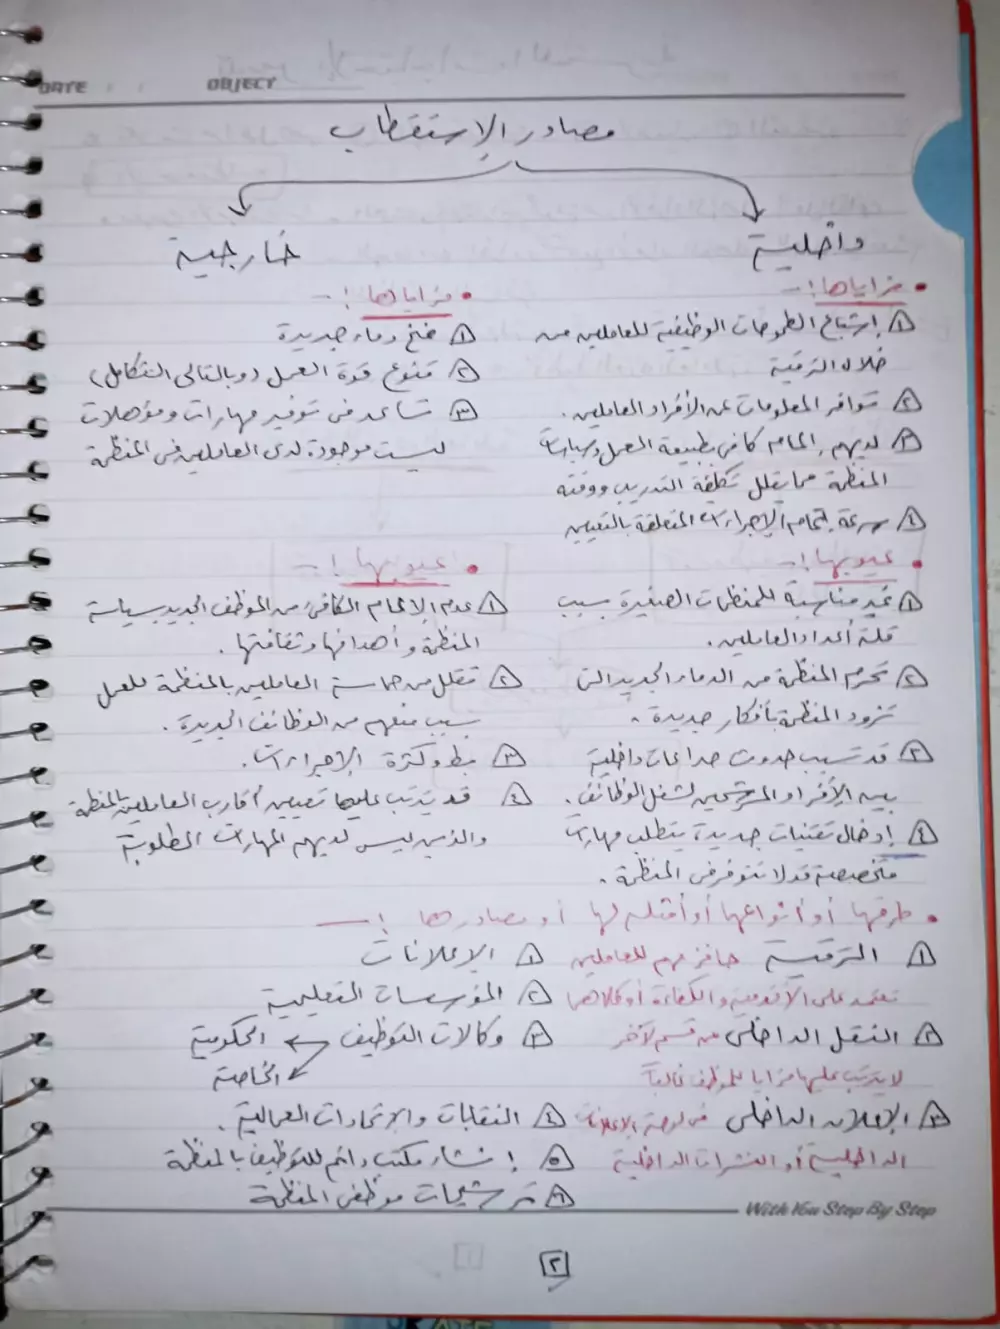 DATE OBJECT
مصادر الاستقطاب
داخلية
• مزاياها :-
١ إشباع الطموحات الوظيفية للعاملين من
خلال الترقية
٢ توافر المعلومات عن الأفراد العاملين.
٣ لديهم إلمام كافي بطبيعة العمل وسياسة
المنظمة مما يقلل تكلفة التدريب ووقته
٤ سرعة إتمام الإجراءات المتعلقة بالتعيين
• عيوبها :-
١ غير مناسبة للمنظمات الصغيرة بسبب
قلة أعداد العاملين.
٢ تحرم المنظمة من الدماء الجديدة التي
تزود المنظمة بأفكار جديدة.
٣ قد تسبب حدوث صراعات داخلية
بين الأفراد المرشحين لشغل الوظائف.
٤ إدخال تقنيات جديدة يتطلب مهارات
متخصصة قد لا تتوفر في المنظمة.
خارجية
• مزاياها :-
١ ضخ دماء جديدة
٢ تنوع قوة العمل (وبالتالي التكامل)
٣ تساعد في توفير مهارات ومؤهلات
ليست موجودة لدى العاملين في المنظمة
• عيوبها :-
١ عدم الإلمام الكافي من الموظف الجديد بسياسة
المنظمة وأهدافها وثقافتها.
٢ تقلل من حماسة العاملين بالمنظمة للعمل
بسبب منعهم من الوظائف الجديدة.
٣ بطء وكثرة الإجراءات.
٤ قد يترتب عليها تعيين أقارب العاملين بالمنظمة
والذين ليس لديهم المهارات المطلوبة
• طرقها أو أنواعها أو أمثلة لها أو مصادرها :-
١ الترقية حافز مهم للعاملين
تعتمد على الأقدمية والكفاءة أو كلاهما
٢ النقل الداخلي من قسم لآخر
لا يترتب عليها مزايا للموظف غالباً
٣ الإعلان الداخلي في لوحة الإعلانات
الداخلية أو النشرات الداخلية
١ الإعلانات
٢ المؤسسات التعليمية
٣ وكالات التوظيف الحكومية
الخاصة
٤ النقابات والاتحادات العمالية.
٥ إنشاء مكتب دائم للتوظيف بالمنظمة
٦ ترشيحات موظفي المنظمة
With You Step By Step
٢